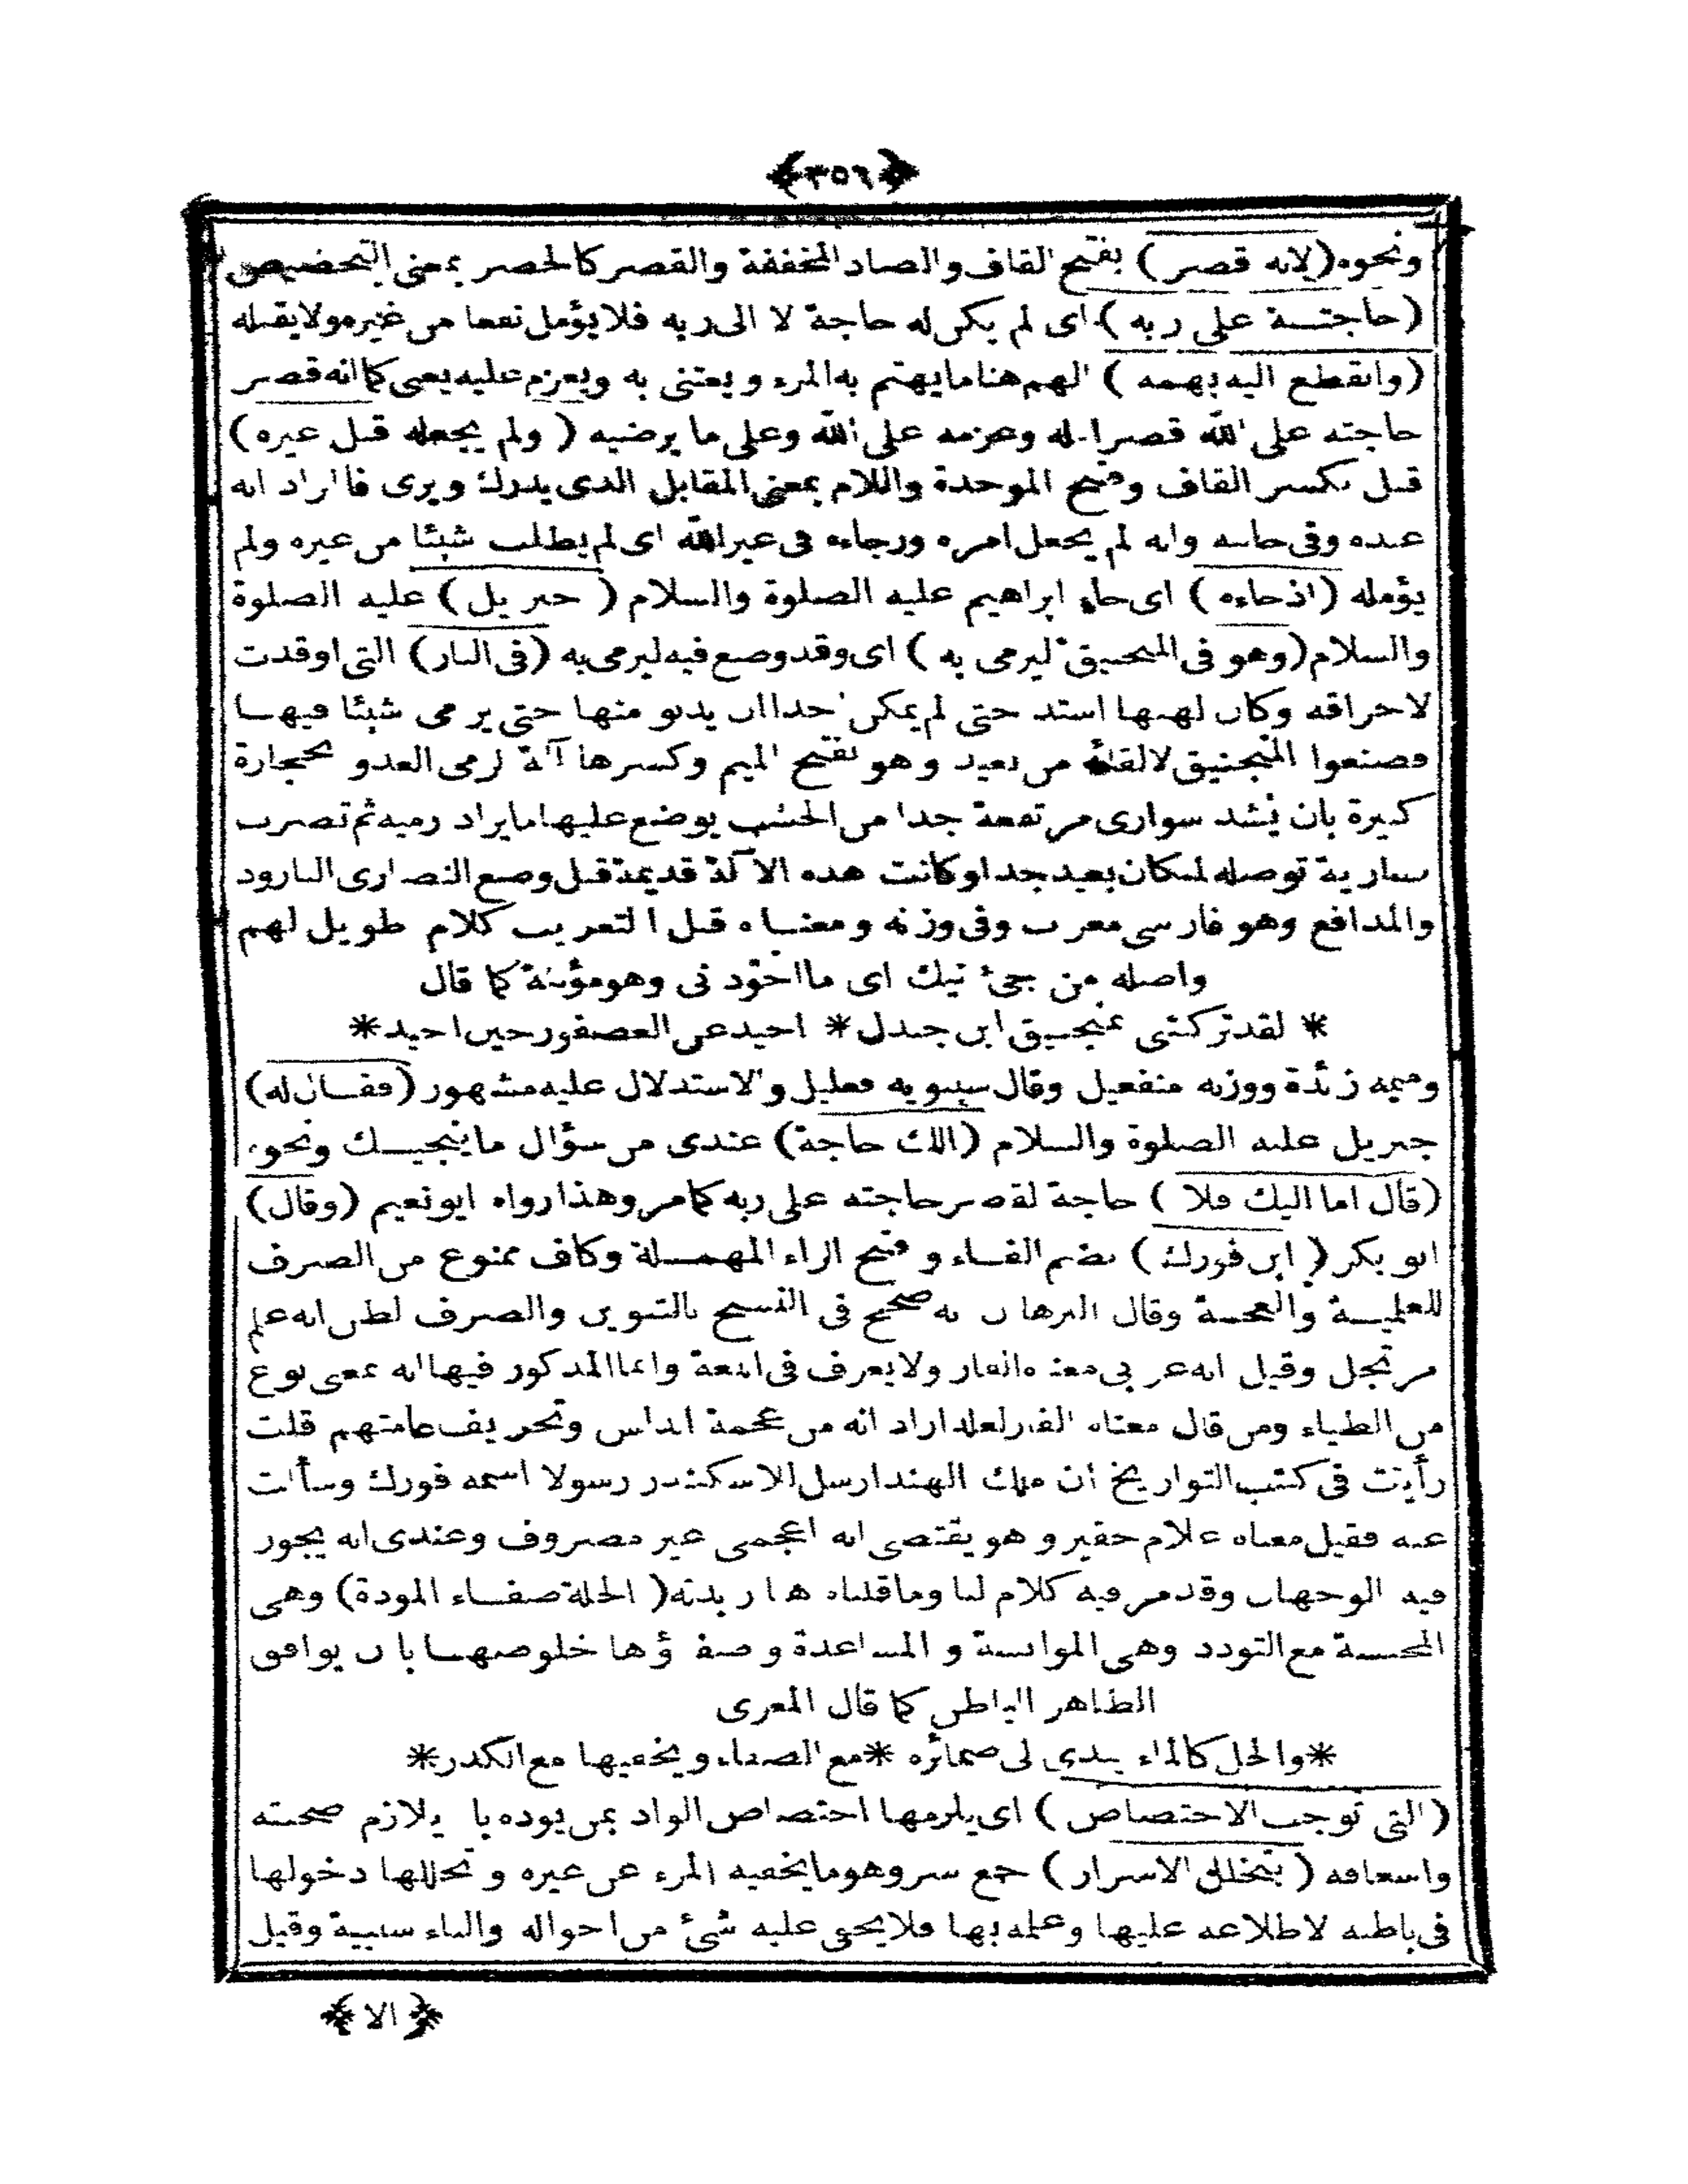 ﴿٣٥٦﴾
ونحوه (لانه قصر) بفتح القاف والصاد المخففة والقصر كالحصر بمعنى التخصيص
(حاجتـه على ربه) اى لم يكن له حاجة الا الى ربه فلا يؤمل نفعا من غيره ولا يقبله
(وانقطع اليه بهمه) الهم هنا ما يهتم به المرء ويعتنى به ويعزم عليه يعنى كما انه قصر
حاجته على الله قصر امله وعزمه على الله وعلى ما يرضيه (ولم يجعله قبل غيره)
قبل بكسر القاف وفتح الموحدة واللام بمعنى المقابل الذى يدرك ويرى فالمراد انه
عنده وفى جانبه وانه لم يجعل امره ورجاءه فى غير الله اى لم يطلب شيئا من غيره ولم
يؤمله (اذ جاءه) اى جاء ابراهيم عليه الصلوة والسلام (جبريل) عليه الصلوة
والسلام (وهو فى المنجنيق ليرمى به) اى وقد وضع فيه ليرمى به (فى النار) التى اوقدت
لاحراقه وكان لهبها اشتد حتى لم يمكن احدا ان يدنو منها حتى يرمى شيئا فيهـا
فصنعوا المنجنيق لالقائه من بعيد وهو بفتح الميم وكسرها آلة لرمى العدو بحجارة
كبيرة بان يشد سوارى مرتفعة جدا من الخشب يوضع عليها ما يراد رميه ثم تضرب
سارية توصله لمكان بعيد جدا وكانت هذه الآلة قديمة قبل وضع النصارى البارود
والمدافع وهو فارسى معرب وفى وزنه ومعنـاه قبل التعريب كلام طويل لهم
واصله من جئ نيك اى ما اجودنى وهو مؤنثة كما قال
* لقد تركتنى منجنيق ابن جندل * احيد عن العصفور حين احيد *
وميمه زائدة ووزنه منفعيل وقال سيبويه فعليل والاستدلال عليه مشهور (فقـال له)
جبريل عليه الصلوة والسلام (الك حاجة) عندى من سؤال ما ينجيـك ونحوه
(قال اما اليك فلا) حاجة لقصر حاجته على ربه كما مر وهذا رواه ابو نعيم (وقال)
ابو بكر (ابن فورك) بضم الفـاء وفتح الراء المهمـلة وكاف ممنوع من الصرف
للعلميـة والعجمـة وقال البرهان انه صحيح فى النسخ بالتنوين والصرف لظن انه علم
مرتجل وقيل انه عربى معناه الفار ولا يعرف فى اللغة وانما المذكور فيها انه بمعنى نوع
من الظباء ومن قال معناه الفار لعله اراد انه من عجمة الناس وتحريف عامتهم قلت
رأيت فى كتب التواريخ ان ملك الهند ارسل للاسكندر رسولا اسمه فورك وسألت
عنه فقيل معناه غلام حقير وهو يقتضى انه اعجمى غير مصروف وعندى انه يجوز
فيه الوجهان وقد مر فيه كلام لنا وما قلناه هنا زبدته (الخلة صفـاء المودة) وهى
المحبـة مع التودد وهى الموانسة والمساعدة وصفاؤها خلوصهـا بان يوافق
الظاهر الباطن كما قال المعرى
* والخل كالماء يبدى لى ضمائره * مع الصفاء ويخفيها مع الكدر *
(التى توجب الاختصاص) اى يلزمها اختصاص الواد بمن يوده بان يلازم صحبته
واسعافه (بتخلل الاسرار) جمع سر وهو ما يخفيه المرء عن غيره وتخللها دخولها
فى باطنه لاطلاعه عليها وعلمه بها فلا يخفى عليه شئ من احواله والباء سببية وقيل
﴿الا﴾